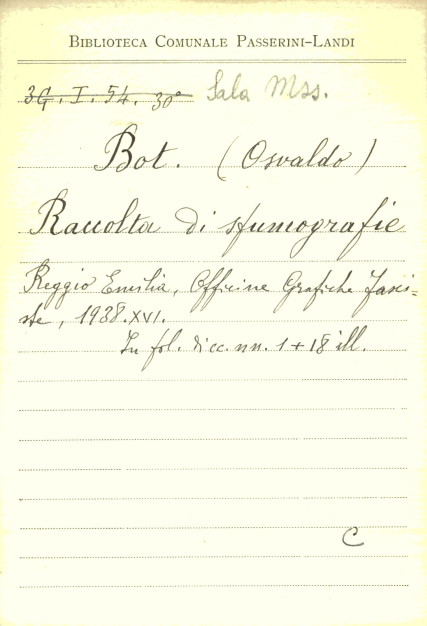 BIBLIOTECA COMUNALE PASSERINI-LANDI
3G. I. 54. 30° Sala Mss.
Bot. (Osvaldo)
Raccolta di sfumografie
Reggio Emilia, Officine Grafiche Fasci=
ste, 1938.XVI.
In fol. di cc. nn. 1 + 18 ill.
C